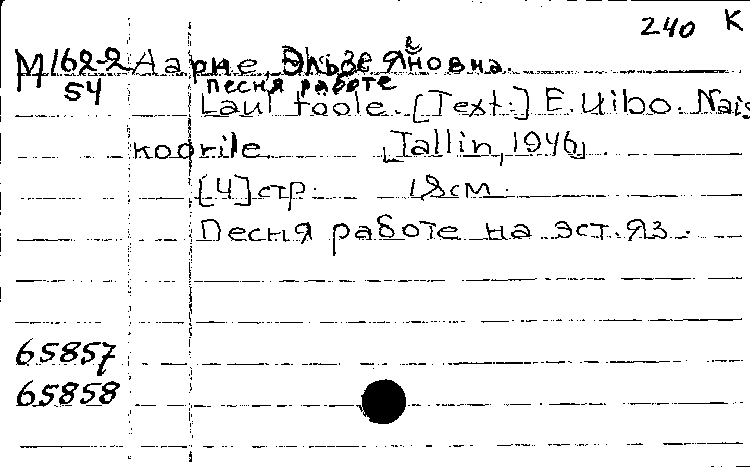 240 K
М162-2 Аарне, Эльзе Яновна.
54 песня работе
Laul tööle. [Text:] E. Uibo. Nais
koorile. [Tallin, 1946]
[4] стр. 18см.
Песня работе на эст. яз.
65857
65858